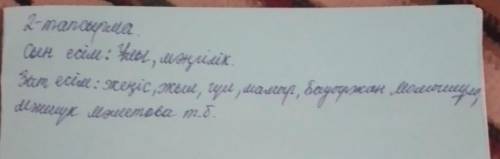 2-тапсырма.
Сын есім: Ұлы, мәңгілік.
Зат есім: жеңіс, жыл, гүл, мамыр, Бауыржан Момышұлы,
Мәншүк Мәметова т.б.